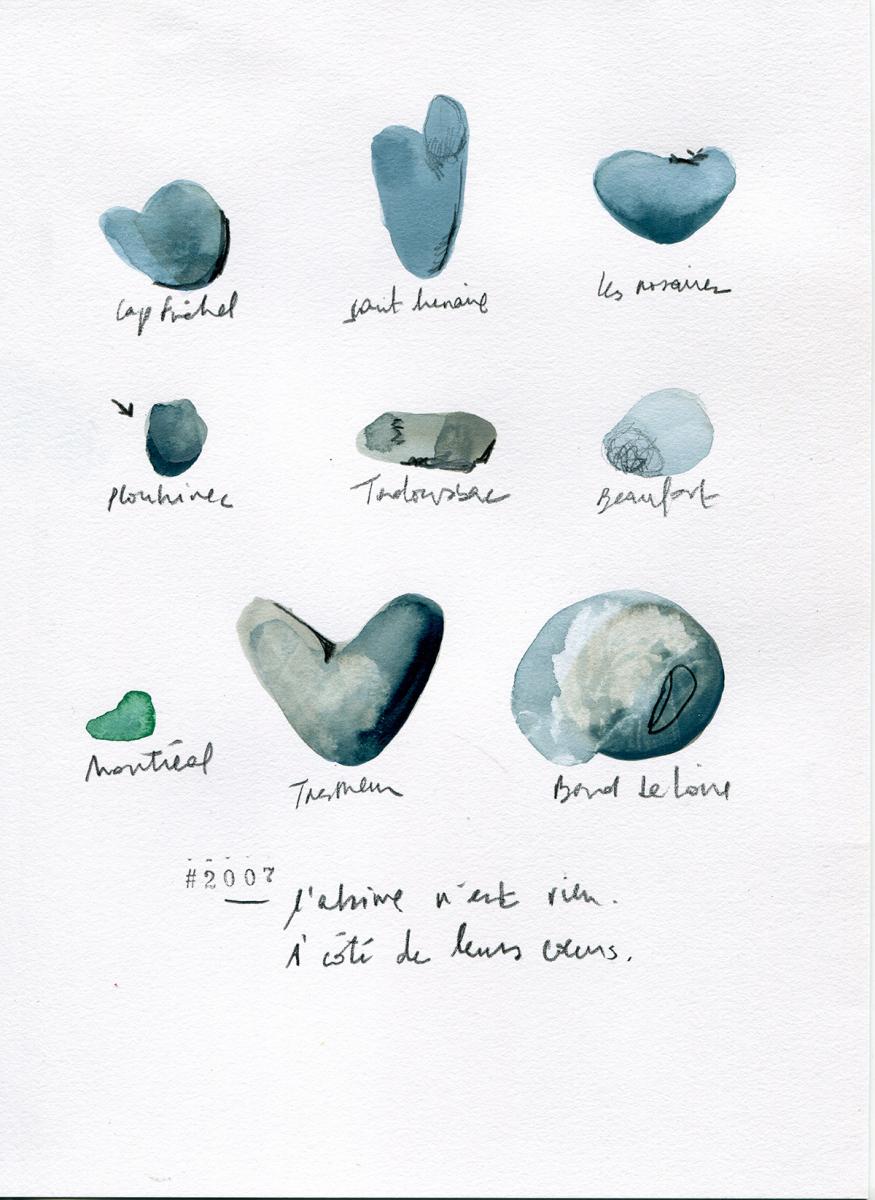 Cap Fréhel
Les rosaires
Plouhinec
Tadoussac
Beaufort
Montréal
Bord de Loire
#2007
l'abime n'est rien.
À côté de leurs cœurs.